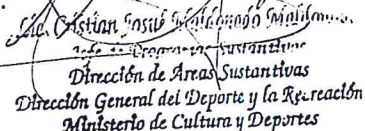 Lic. Cristian Josué Maldonado Maldonado
Jefe de Programas Sustantivos
Dirección de Areas Sustantivas
Dirección General del Deporte y la Recreación
Ministerio de Cultura y Deportes